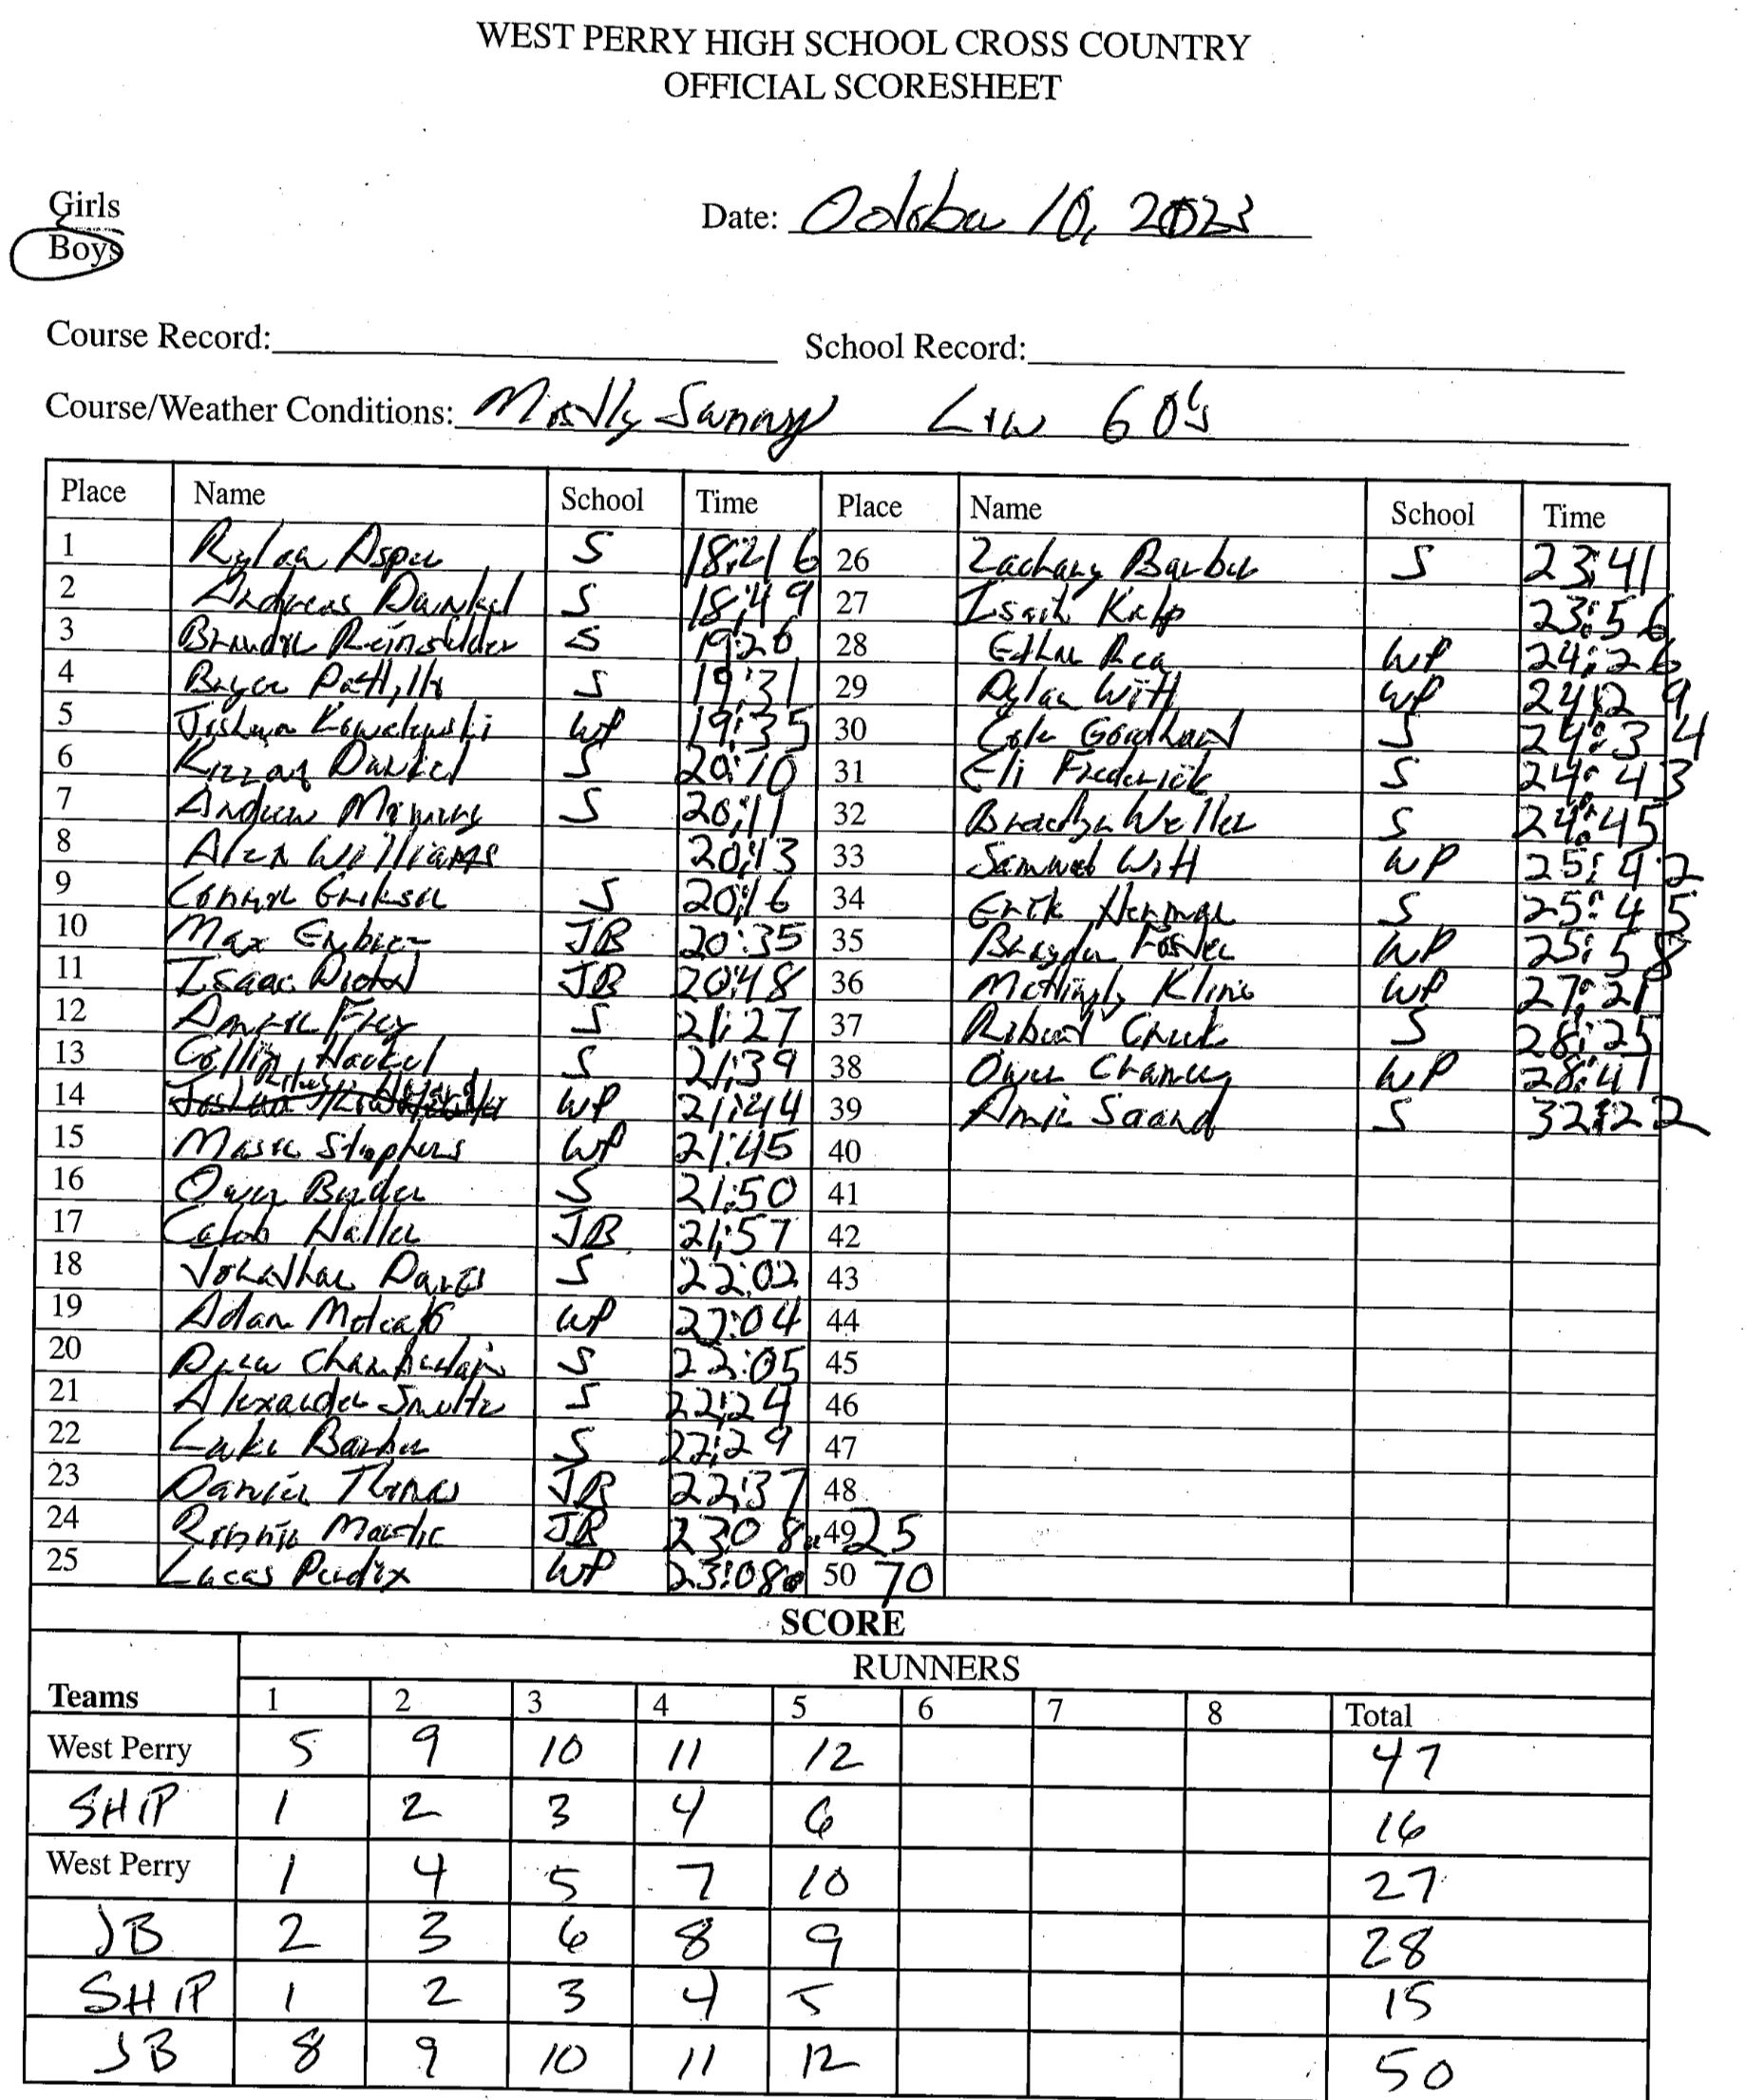 WEST PERRY HIGH SCHOOL CROSS COUNTRY
OFFICIAL SCORESHEET
Girls
Boys
Date: October 10, 2023
Course Record: School Record:
Course/Weather Conditions: Mostly Sunny Low 60's
Place Name School Time Place Name School Time
1 Rylan Asper S 18:216 26 Zachary Barber S 23:41
2 Andreas Dankel S 18:49 27 Isaih Kulp 23:56
3 S 19:26 28 Ethan Rea WP 24:26
4 Bryce S 19:31 29 Dylan Witt WP 24:29
5 Joshua Kowalewski WP 19:35 30 Cole Goodhart S 24:34
6 Dankel S 20:10 31 Eli Frederick S 24:43
7 Andrew S 20:11 32 Weller S 24:45
8 Alex Williams 20:13 33 Samuel Witt WP 25:42
9 Connor S 20:16 34 Erik Herman S 25:45
10 Max JB 20:35 35 Brayden Foster WP 25:58
11 Isaac JB 20:48 36 Kline WP 27:21
12 Frey S 21:27 37 Robert S 28:25
13 Collin S 21:39 38 Owen Chaney WP 28:41
14 WP 21:44 39 Amir S 32:22
15 Mason Stephens WP 21:45 40
16 Owen S 21:50 41
17 Caleb Haller JB 21:57 42
18 Jonathan Davis S 22:02 43
19 Adam Metcalf WP 22:04 44
20 Drew Chamberlain S 22:05 45
21 Alexander Smultz S 22:24 46
22 Luke Barber S 22:29 47
23 JB 22:37 48
24 Martic JB 23:08.25 49
25 Lucas Perdix WP 23:08.70 50
SCORE
RUNNERS
Teams 1 2 3 4 5 6 7 8 Total
West Perry 5 9 10 11 12 47
SHIP 1 2 3 4 6 16
West Perry 1 4 5 7 10 27
JB 2 3 6 8 9 28
SHIP 1 2 3 4 5 15
JB 8 9 10 11 12 50